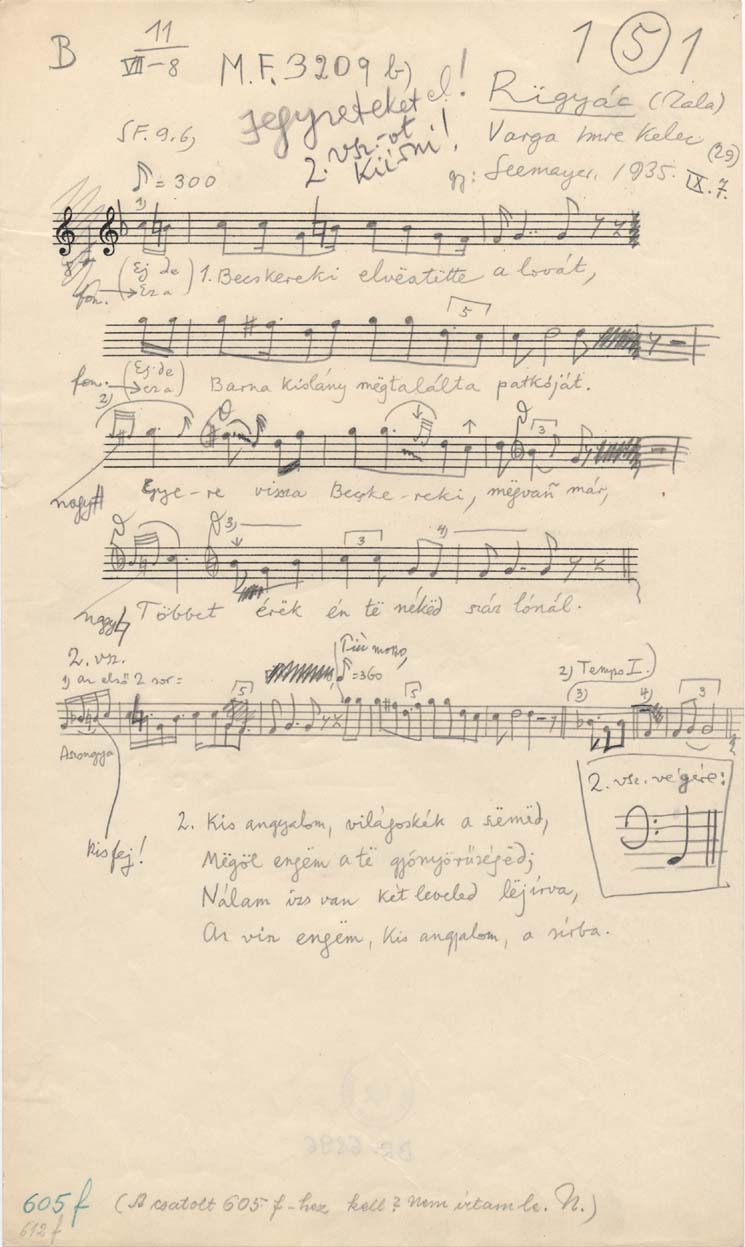 B 11 1 5 1
VII-8 M.F. 3209 b)
Jegyzeteket el!
2. vsz.-ot
Kiírni!
Rigyác (Zala)
Varga Imre Kelec (29)
gy: Seemayer. 1935. IX. 7.
SF. 9. 6,
♪ = 300
1)
8
fon. (Ej de → Ez a) 1. Becskereki elvëszitte a lovát,
5
fon. → (Ej de eza) Barna kislány mëgtalálta patkóját.
2)
3
nagy Egye-re vissza Becske-reki, mëgvan már,
3) 3 4)
nagy Többet érëk én të nékëd száz lónál.
2. vsz.
1) az első 2 sor:
5 ♪=360 5 2) Tempo I. 3) 4) 3
Aszongya
kis fej!
2. vsz. végére:
2. Kis angyalom, világoskék a szëmëd,
Mëgöl engëm a të gyönyörűségëd;
Nálam izs van két leveled lëjírva,
Az visz engëm, kis angyalom, a sírba.
605 f (A csatolt 605 f-hez kell? Nem írtam le. N.)
612 f